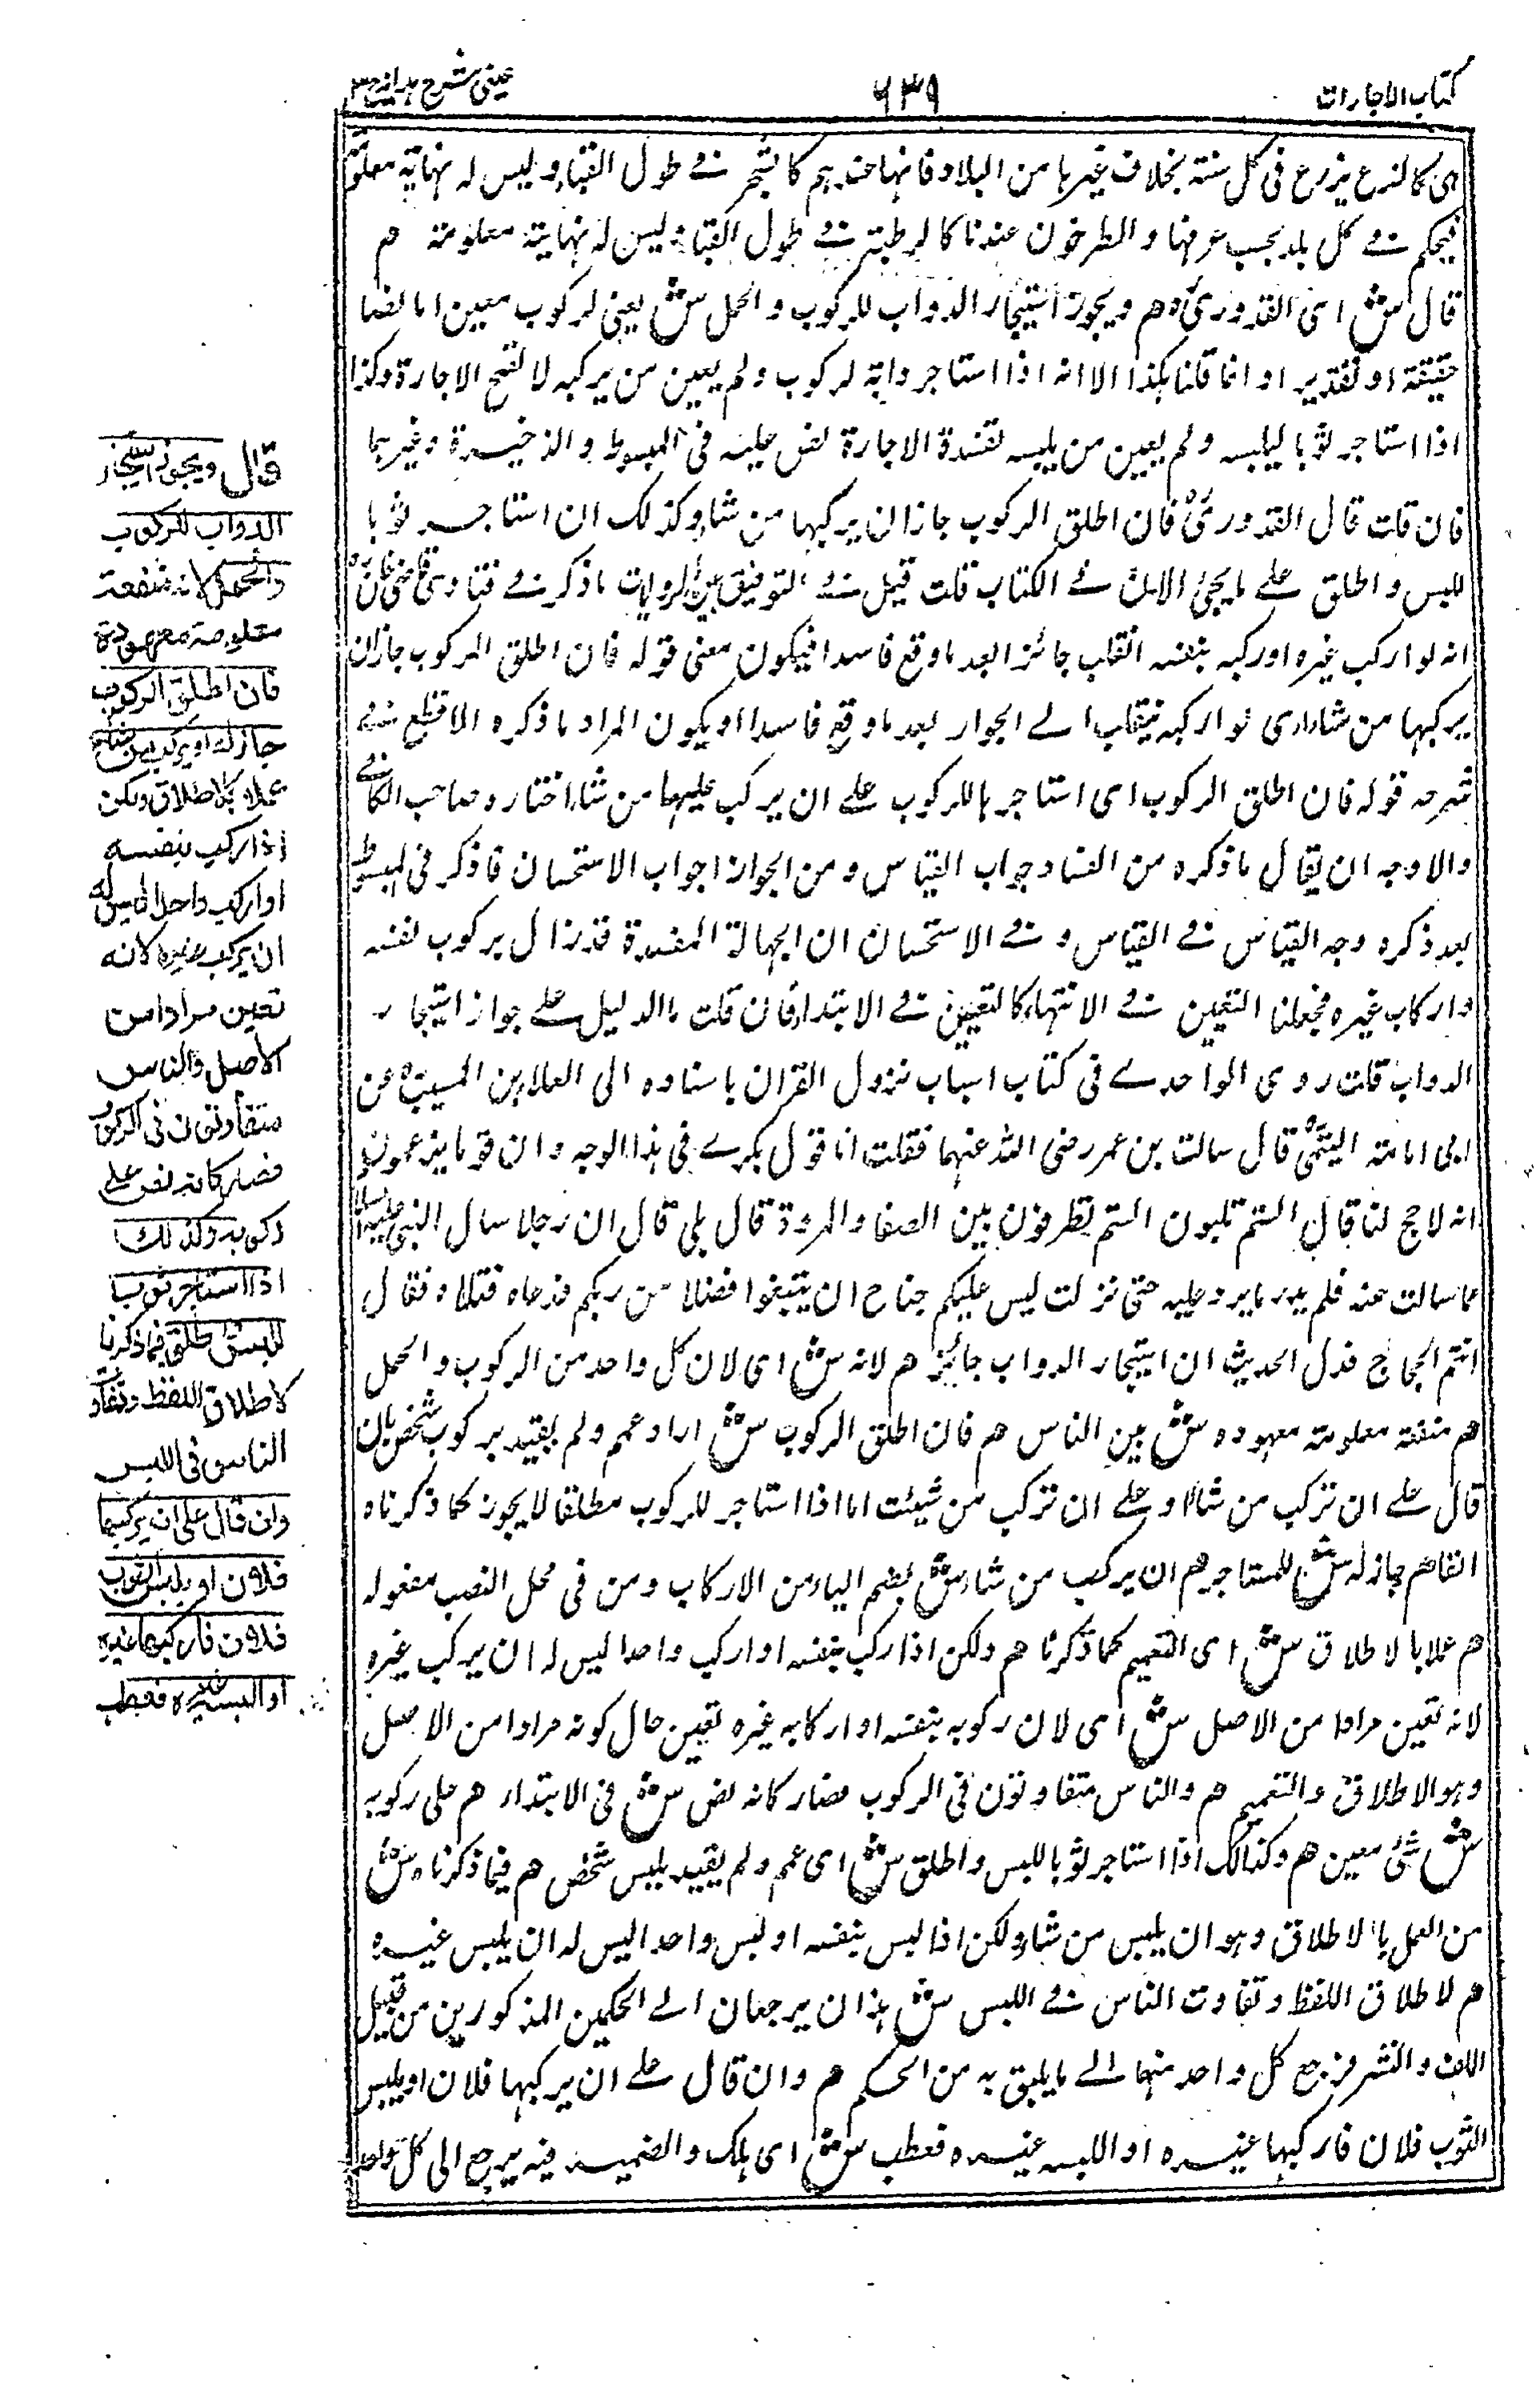 كتاب الاجارات
٦٣٩
عينى شرح هدايه ج٣
هى كالزرع يزرع فى كل سنة بخلاف غيرها من البلاد فانها عندهم كالشجر فى طول البقاء وليس له نهاية معلومة
فيحكم فى كل بلد بحسب عرفها والطرخون عندنا كالرطبة فى طول البقاء ليس له نهاية معلومة م
قال ش اى القدورىؒ م ويجوز استيجار الدواب للركوب والحمل ش يعنى لركوب معين اما نصا
حقيقة او تقديرا وانما قلنا هكذا الا انه اذا استاجر دابة لركوب ولم يعين من يركبه لا تصح الاجارة وكذا
اذا استاجر ثوبا ليلبسه ولم يعين من يلبسه تفسدة الاجارة نص عليه فى المبسوط والذخيرة وغيرهما
فان قلت قال القدورىؒ فان اطلق الركوب جاز ان يركبها من شاء وكذلك ان استاجر ثوبا
للبس واطلق على ما يجئ الان فى الكتاب قلت قيل فى التوفيق بين الروايات ما ذكر فى فتاوى قاضى خانؒ
انه لو اركب غيره او ركبه بنفسه انقلب جائزا بعد ما وقع فاسدا فيكون معنى قوله فان اطلق الركوب جاز ان
يركبها من شاء اى لو اركبه ينقلب الى الجواز بعد ما وقع فاسدا او يكون المراد ما ذكره الاقطع فى
شرحه قوله فان اطلق الركوب اى استاجرها للركوب على ان يركب عليها من شاء اختاره صاحب الكافى
والاوجه ان يقال ما ذكره من الفساد جواب القياس ومن الجواز اجواب الاستحسان فاذكر فى المبسوط
بعد ذكره وجه القياس فى القياس وفى الاستحسان ان الجهالة المفسدة قد زال بركوب نفسه
واركاب غيره فجعلنا التعيين فى الانتهاء كالتعيين فى الابتداء فان قلت ما الدليل على جواز استيجار
الدواب قلت روى الواحدى فى كتاب اسباب نزول القران باسناده الى العلاء بن المسيبؒ عن
ابى امامة التيمىؒ قال سالت بن عمر رضى الله عنهما فقلت انا قول بكرى فى هذا الوجه وان قوما يزعمون
انه لا حج لنا قال الستم تلبون الستم تطوفون بين الصفا والمروة قال بلى قال ان رجلا سال النبى عليه السلام
عما سالت عنه فلم يدر ما يرد عليه حتى نزلت ليس عليكم جناح ان يتبغوا فضلا من ربكم فدعاه فتلاه فقال
انتم الحجاج فدل الحديث ان استيجار الدواب جائز م لانه ش اى لان كل واحد من الركوب والحمل
م منفعة معلومة معهوده ش بين الناس م فان اطلق الركوب ش اراد عمم ولم يقيد بركوب شخص بان
قال على ان تركب من شاء او على ان تركب من شيئت اما اذا استاجر للركوب مطلقا لا يجوز كما ذكرناه
انفا م جاز له ش للمستاجر م ان يركب من شاء ش بضم الياء من الاركاب ومن فى محل النصب مفعوله
م عملا بالاطلاق ش اى التعميم كما ذكرنا م ولكن اذا ركب بنفسه او اركب واحدا ليس له ان يركب غيره
لانه تعين مرادا من الاصل ش اى لان ركوبه بنفسه او اركابه غيره تعين حال كونه مرادا من الاصل
وهو الاطلاق والتعميم م والناس متفاوتون فى الركوب فصار كانه نص ش فى الابتداء م على ركوبه
ش شئ معين م وكذالك اذا استاجر ثوبا للبس واطلق ش اى عمم ولم يقيد بلبس شخص م فيما ذكرناه ش
من العمل بالاطلاق وهو ان يلبس من شاء ولكن اذا لبس بنفسه او لبس واحدا ليس له ان يلبس غيره
م لاطلاق اللفظ وتفاوت الناس فى اللبس ش هذان يرجعان الى الحكمين المذكورين من قبيل
اللف والنشر فرجع كل واحد منهما الى ما يليق به من الحكم م وان قال على ان يركبها فلان او يلبس
الثوب فلان فاركبها غيره او البسه غيره فعطب ش اى هلك والضمير فيه يرجع الى كل واحد
قال ويجوز استيجار
الدواب للركوب
والحمل لانه منفعة
معلومة معهودة
فان اطلق الركوب
جاز له ان يركب من شاء
عملا بالاطلاق ولكن
اذا ركب بنفسه
او اركب واحدا ليس له
ان يركب غيره لانه
تعين مرادا من
الاصل والناس
متفاوتون فى الركوب
فصار كانه نص على
ركوبه وكذلك
اذا استاجر ثوبا
للبس واطلق فيما ذكرنا
لاطلاق اللفظ وتفاوت
الناس فى اللبس
وان قال على ان يركبها
فلان او يلبس الثوب
فلان فاركبها غيره
او البسه غيره فعطب